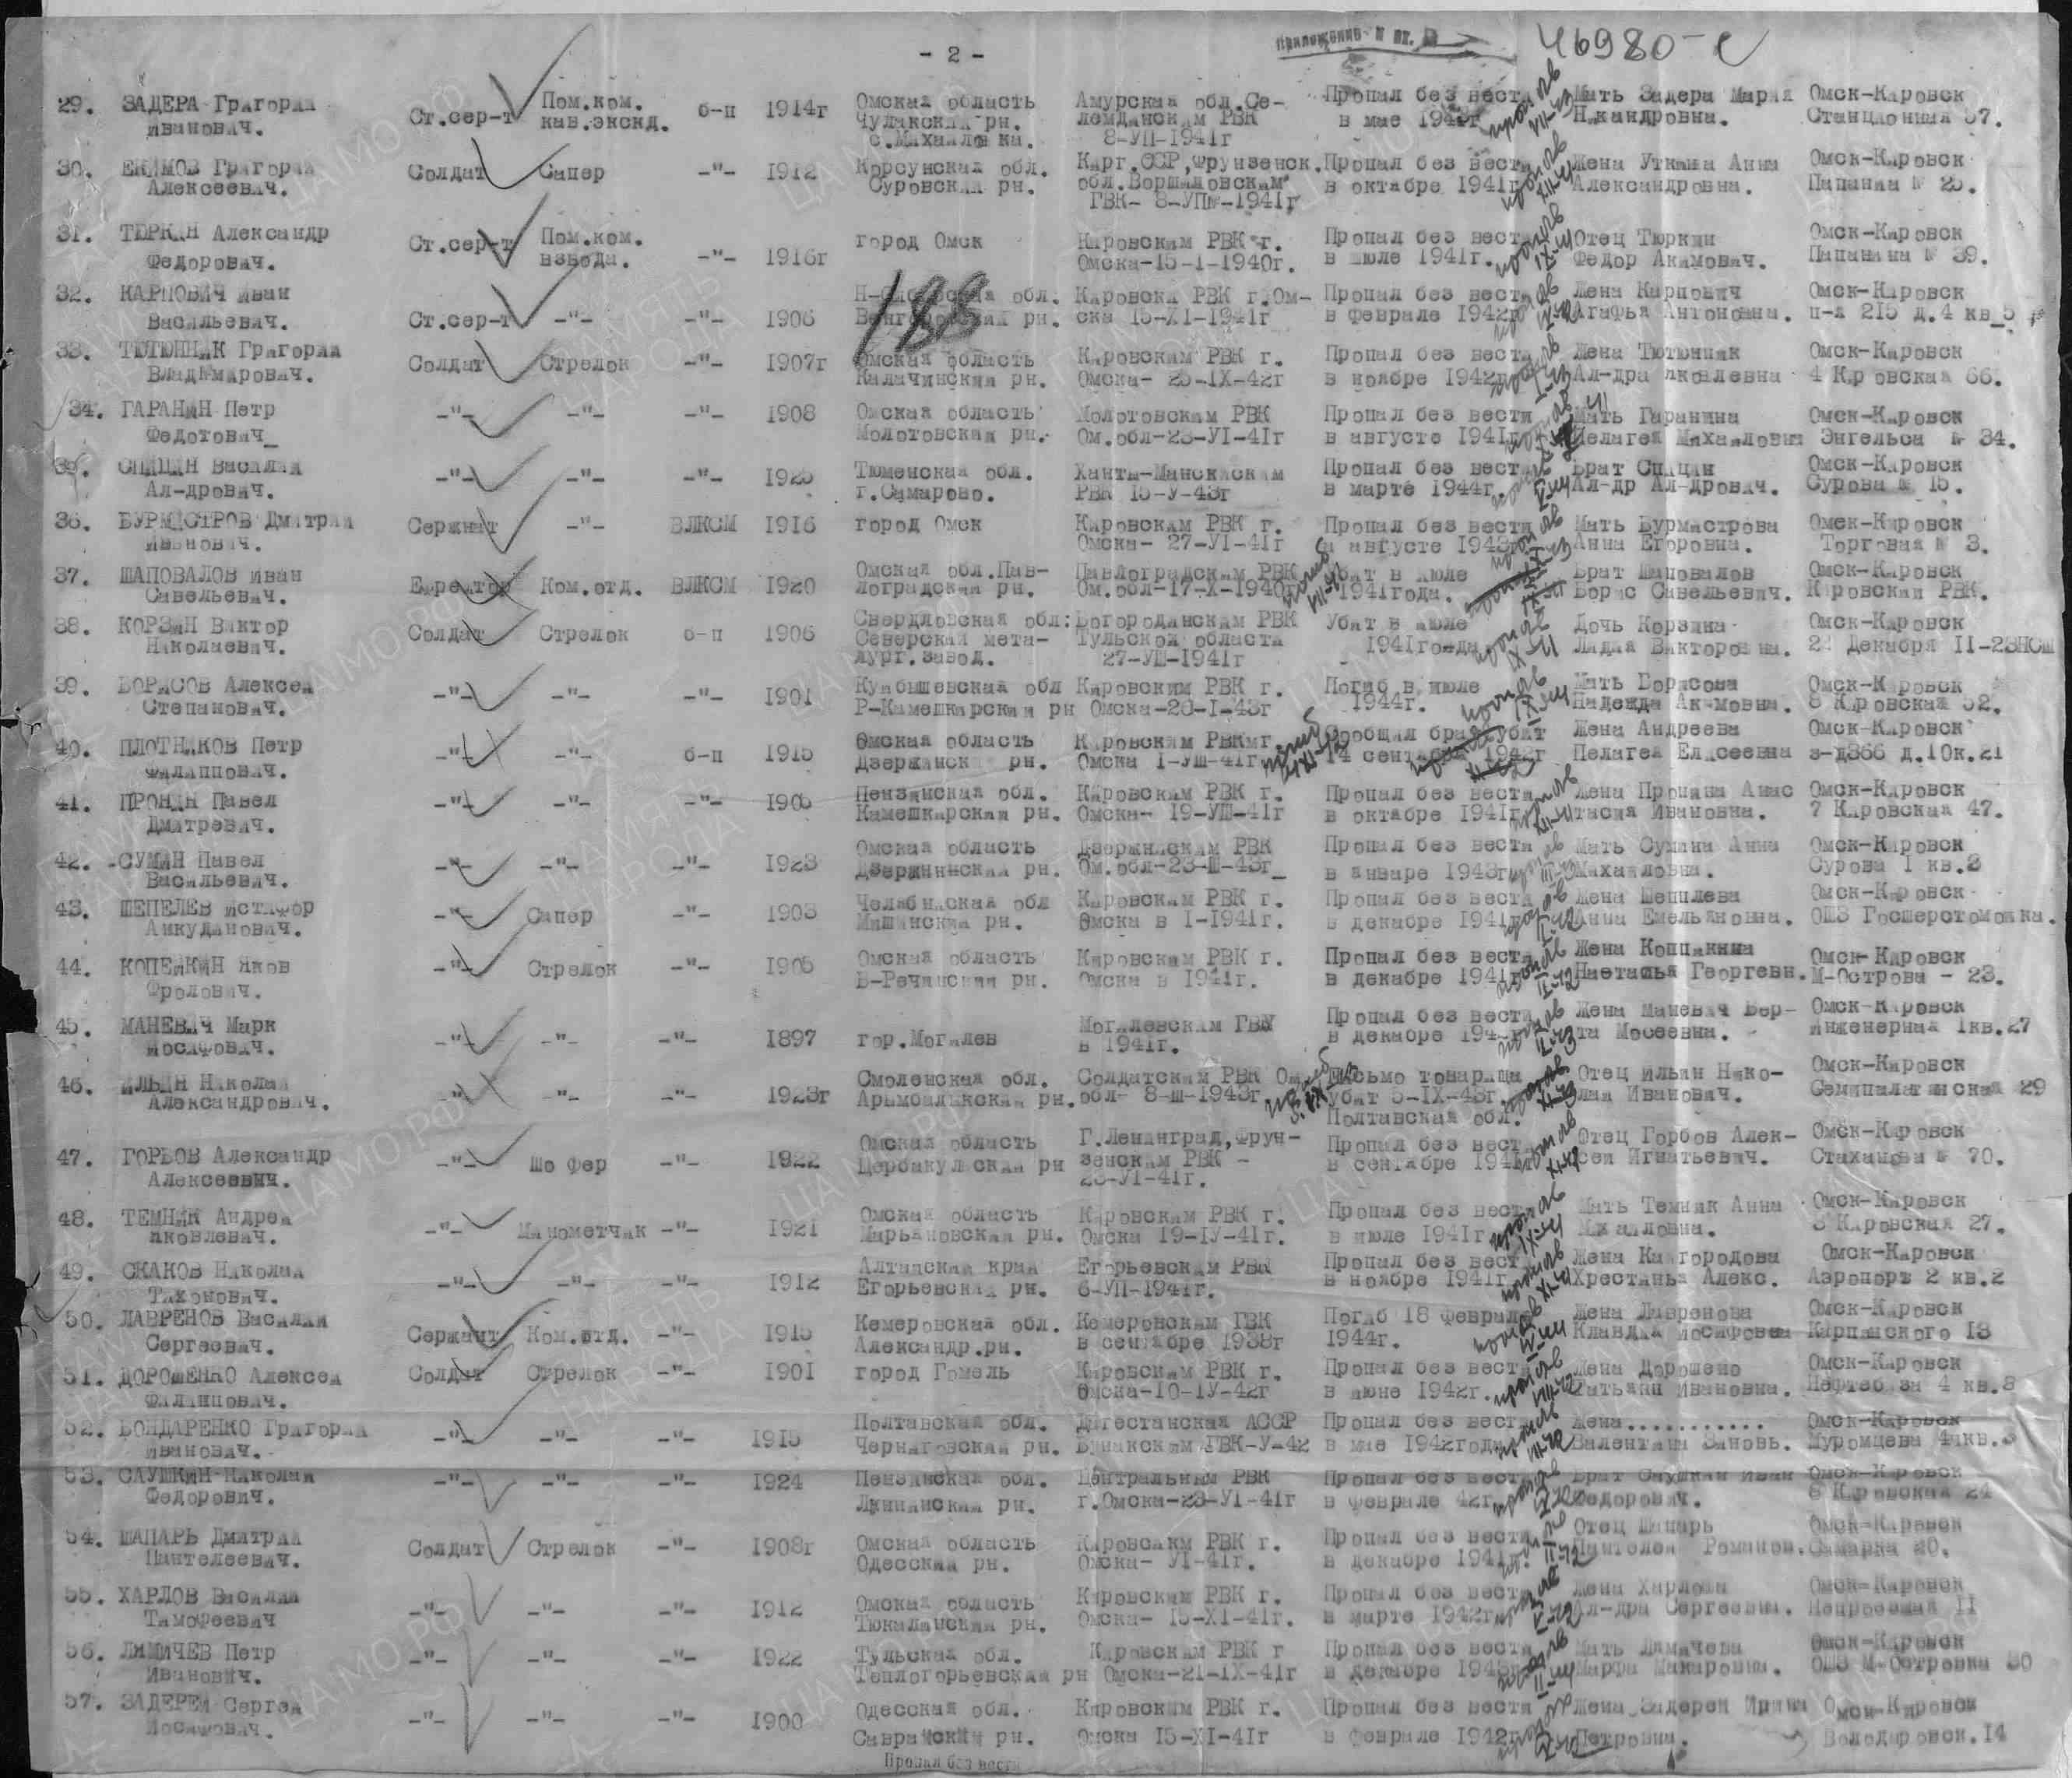 - 2 -
Приложение к вх. 46980-с
29. ЗАДЕРА Григорий Ст.сер-т Пом.ком. б-п 1914г Омская область Амурская обл.Се- Пропал без вести Мать Задера Мария Омск-Кировск
Иванович. кав.экскд. Чулакский рн. лемджинским РВК в мае 194 г Никандровна. Станционная 57.
с.Михайловка. 8-УП-1941г
30. ЕКИМОВ Григорий Солдат Сапер -"- 1912 Корсунская обл. Кирг.ССР,Фрунзенск. Пропал без вести Жена Уткина Анна Омск-Кировск
Алексеевич. Суровский рн. обл.Ворошиловским в октябре 1941г Александровна. Папанина № 25.
ГВК- 8-УП-1941г
31. ТЮРКИН Александр Ст.сер-т Пом.ком. -"- 1916г город Омск Кировским РВК г. Пропал без вести Отец Тюркин Омск-Кировск
Федорович. взвода. Омска-15-1-1940г. в июле 1941г. Федор Акимович. Папанина № 39.
188
32. КАРПОВИЧ Иван Ст.сер-т -"- -"- 1906 обл. Кировски РВК г.Ом- Пропал без вести Жена Карпович Омск-Кировск
Васильевич. рн. ска 15-XI-1941г в феврале 1942г Агафья Антоновна. п-я 215 д.4 кв_5
33. ТЮТЮННИК Григорий Солдат Стрелок -"- 1907г Омская область Кировским РВК г. Пропал без вести Жена Тютюнник Омск-Кировск
Владимирович. Калачинский рн. Омска- 25-IX-42г в ноябре 1942г Ал-дра Яковлевна 4 Кировская 66.
34. ГАРАНИН Петр -"- -"- -"- 1908 Омская область Молотовским РВК Пропал без вести Мать Гаранина Омск-Кировск
Федотович_ Молотовский рн. Ом.обл-23-УI-41г в августе 1941г Пелагея Михайловна Энгельса № 34.
35. СПИЦИН Василий -"- -"- -"- 1925 Тюменская обл. Ханты-Мансийским Пропал без вести Брат Спицин Омск-Кировск
Ал-дрович. г.Самарово. РВК 15-У-43г в марте 1944г. Ал-др Ал-дрович. Сурова № 15.
36. БУРМИСТРОВ Дмитрий Сержант -"- ВЛКСМ 1916 город Омск Кировским РВК г. Пропал без вести Мать Бурмистрова Омск-Кировск
Иванович. Омска- 27-УI-41г в августе 1943г Анна Егоровна. Торговая № 3.
37. ШАПОВАЛОВ Иван Ефрейтор Ком.отд. ВЛКСМ 1920 Омская обл.Пав- Павлоградским РВК Убит в июле Брат Шаповалов Омск-Кировск
Савельевич. лоградский рн. Ом.обл-17-X-1940г 1941года. Борис Савельевич. Кировский РВК.
38. КОРЗИН Виктор Солдат Стрелок б-п 1906 Свердловская обл: Богородицким РВК Убит в июле Дочь Корзина Омск-Кировск
Николаевич. Северский мета- Тульской области 1941гоода Лидия Викторовна. 22 Декабря II-23НСШ
лург.завод. 27-УШ-1941г
39. БОРИСОВ Алексей -"- -"- -"- 1901 Куйбышевская обл Кировским РВК г. Погиб в июле Мать Борисова Омск-Кировск
Степанович. Р-Камешкирский рн Омска-20-I-43г 1944г. Надежда Акимовна. 8 Кировская 52.
40. ПЛОТНИКОВ Петр -"- -"- б-п 1915 Омская область Кировским РВКмг Сообщил брат убит Жена Андреева Омск-Кировск
Филиппович. Дзержинск рн. Омска 1-УШ-41г 14 сентября 1942г Пелагея Елисеевна з-д366 д.10к.21
41. ПРОНИН Павел -"- -"- -"- 1905 Пензинская обл. Кировским РВК г. Пропал без вести Жена Пронина Анас Омск-Кировск
Дмитревич. Камешкирский рн. Омска- 19-УШ-41г в октябре 1941г тасия Ивановна. 7 Кировская 47.
42. СУМИН Павел -"- -"- -"- 1923 Омская область Дзержинским РВК Пропал без вести Мать Сумина Анна Омск-Кировск
Васильевич. Дзержинский рн. Ом.обл-23-Ш-43г_ в январе 1943г Михайловна. Сурова I кв.2
43. ШЕПЕЛЕВ Истифор -"- Сапер -"- 1903 Челябинская обл Кировским РВК г. Пропал без вести Жена Шепилева Омск-Кировск
Аникуданович. Мишинский рн. Омска в I-1941г. в декабре 1941г Анна Емельяновна. ОШЗ Госшерстомойка.
44. КОПЕЙКИН Яков -"- Стрелок -"- 1905 Омская область Кировским РВК г. Пропал без вести Жена Коппикина Омск-Кировск
Фролович. Б-Речинский рн. Омска в 1941г. в декабре 1941г Настасья Георгевн. М-Острова - 23.
45. МАНЕВИЧ Марк -"- -"- -"- 1897 гор.Могилев Могилевским ГВК Пропал без вести Жена Маневич Бер- Омск-Кировск
Иосифович. в 1941г. в декабре 194 та Мосеевна. Инженерная 1кв.27
46. ИЛЬИН Николай -"- -"- -"- 1923г Смоленская обл. Солдатским РВК Ом Письмо товарища Отец Ильин Нико- Омск-Кировск
Александрович. рн. обл- 8-Ш-1943г. убит 5-IX-43г. лай Иванович. Семипалатинская 29
Полтавская обл.
47. ГОРБОВ Александр -"- Шофер -"- 1922 Омская область Г.Ленинград,Фрун- Пропал без вести Отец Горбов Алек- Омск-Кировск
Алексеевич. Щербакульский рн зенским РВК - в сентябре 194 сей Игнатьевич. Стаханова № 70.
23-УI-41г.
48. ТЕМНИК Андрей -"- Минометчик -"- 1921 Омская область Кировским РВК г. Пропал без вести Мать Темник Анна Омск-Кировск
Яковлевич. Марьяновский рн. Омска 19-IУ-41г. в июле 1941г Михайловна. 3 Кировская 27.
49. СКАКОВ Николай -"- -"- -"- 1912 Алтайский край Егорьевским РВК Пропал без вести Жена Кайгородова Омск-Кировск
Тихонович. Егорьевский рн. 6-УП-1941г. в ноябре 1941г Хрестинья Алекс. Аэропорт 2 кв.2
50. ЛАВРЕНОВ Василий Сержант Ком.отд. -"- 1915 Кемеровская обл. Кемеровским ГВК Погиб 18 февраля Жена Лавренова Омск-Кировск
Сергеевич. Александр.рн. в сентябре 1938г 1944г. Клавдия Иосифовна Карпинского 13
51. ДОРОШЕНКО Алексей Солдат Стрелок -"- 1901 город Гомель Кировским РВК г. Пропал без вести Жена Дорошено Омск-Кировск
Филиппович. Омска-10-IУ-42г в июне 1942г. Татьяни Ивановна. Нефтеб за 4 кв.8
52. БОНДАРЕНКО Григорий -"- -"- -"- 1915 Полтавская обл. Дагестанская АССР Пропал без вести Жена........... Омск-Кировск
Иванович. Черниговский рн. Буйнакским ГВК-У-42 в мае 1942года Валентина Зиновь. Муромцева 4 кв.3
53. СЛУШКИН Николай -"- -"- -"- 1924 Пензинская обл. Центральным РВК Пропал без вести Брат Слушкин Иван Омск-Кировск
Федорович. Лунинский рн. г.Омска-23-УI-41г в феврале 42г Федорович. 8 Кировская 24
54. ШАПАРЬ Дмитрий Солдат Стрелок -"- 1908г Омская область Кировским РВК г. Пропал без вести Отец Шапарь Омск-Кировск
Пантелеевич. Одесский рн. Омска- УI-41г. в декабре 1941г. Пантелей Романов. Самарка 20.
55. ХАРЛОВ Василий -"- -"- -"- 1912 Омская область Кировским РВК г. Пропал без вести Жена Харлова Омск-Кировск
Тимофеевич Тюкалинский рн. Омска- 15-XI-41г. в марте 1942г Ал-дра Сергеевна. Непроезжая II
56. ЛИМИЧЕВ Петр -"- -"- -"- 1922 Тульская обл. Кировским РВК г Пропал без вести Мать Лимичева Омск-Кировск
Иванович. Теплогорьевский рн Омска-21-IX-41г в декабре 1943г Марфа Макаровна. ОШЗ М-Островка 30
57. ЗАДЕРЕЙ Сергей -"- -"- -"- 1900 Одесская обл. Кировским РВК г. Пропал без вести Жена Задерей Ирина Омск-Кировск
Иосифович. Савранский рн. Омска 15-XI-41г в феврале 1942г Петровна. Володаровск.14
Пропал без вести